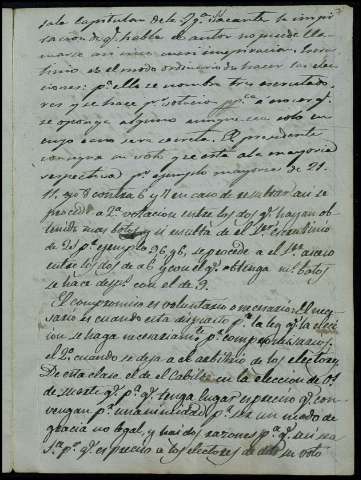 sala Capitular de la Yga Vacante la
sacion de q. habla el autor no puede lla-
marse
tinio es el modo ordinario de hacer las elec-
ciones: pa ella se nombra tres escrutado-
res y se hace pr
se oponga alguno aunque con voto en
cuyo caso sera secreta. El presidente
su voto y se está a la mayoria
respectiva pr ejemplo mayoria de 21.
11. en 8 contra 6 y 7 en caso de resultar asi se
procede a 2a votacion entre los dos q. hayan ob-
tenido mas botos y si resulta del 1er escrutinio
de 21 pr ejemplo 9 6 y 6, se procede al 1er
entre los dos de a 6 y con el q. obtenga mas botos
se hace despues con el de 9.
El compromiso es voluntario o necesario: el nece-
sario es cuando esta dispuesto pr la ley q. la elecci-
on se haga necesariamte pr compromisarios,
el 2o cuando se deja al arbitrio de los electores
De esta clase el de el Cabildo en la eleccion de Ob.
de suerte q. pa q. tenga lugar es preciso q. con-
vengan pr unanimidad pr ser un modo de
gracia no legal, y hai dos razones pa q. asi sea
1a pr q. es preciso a los electores de dar su voto